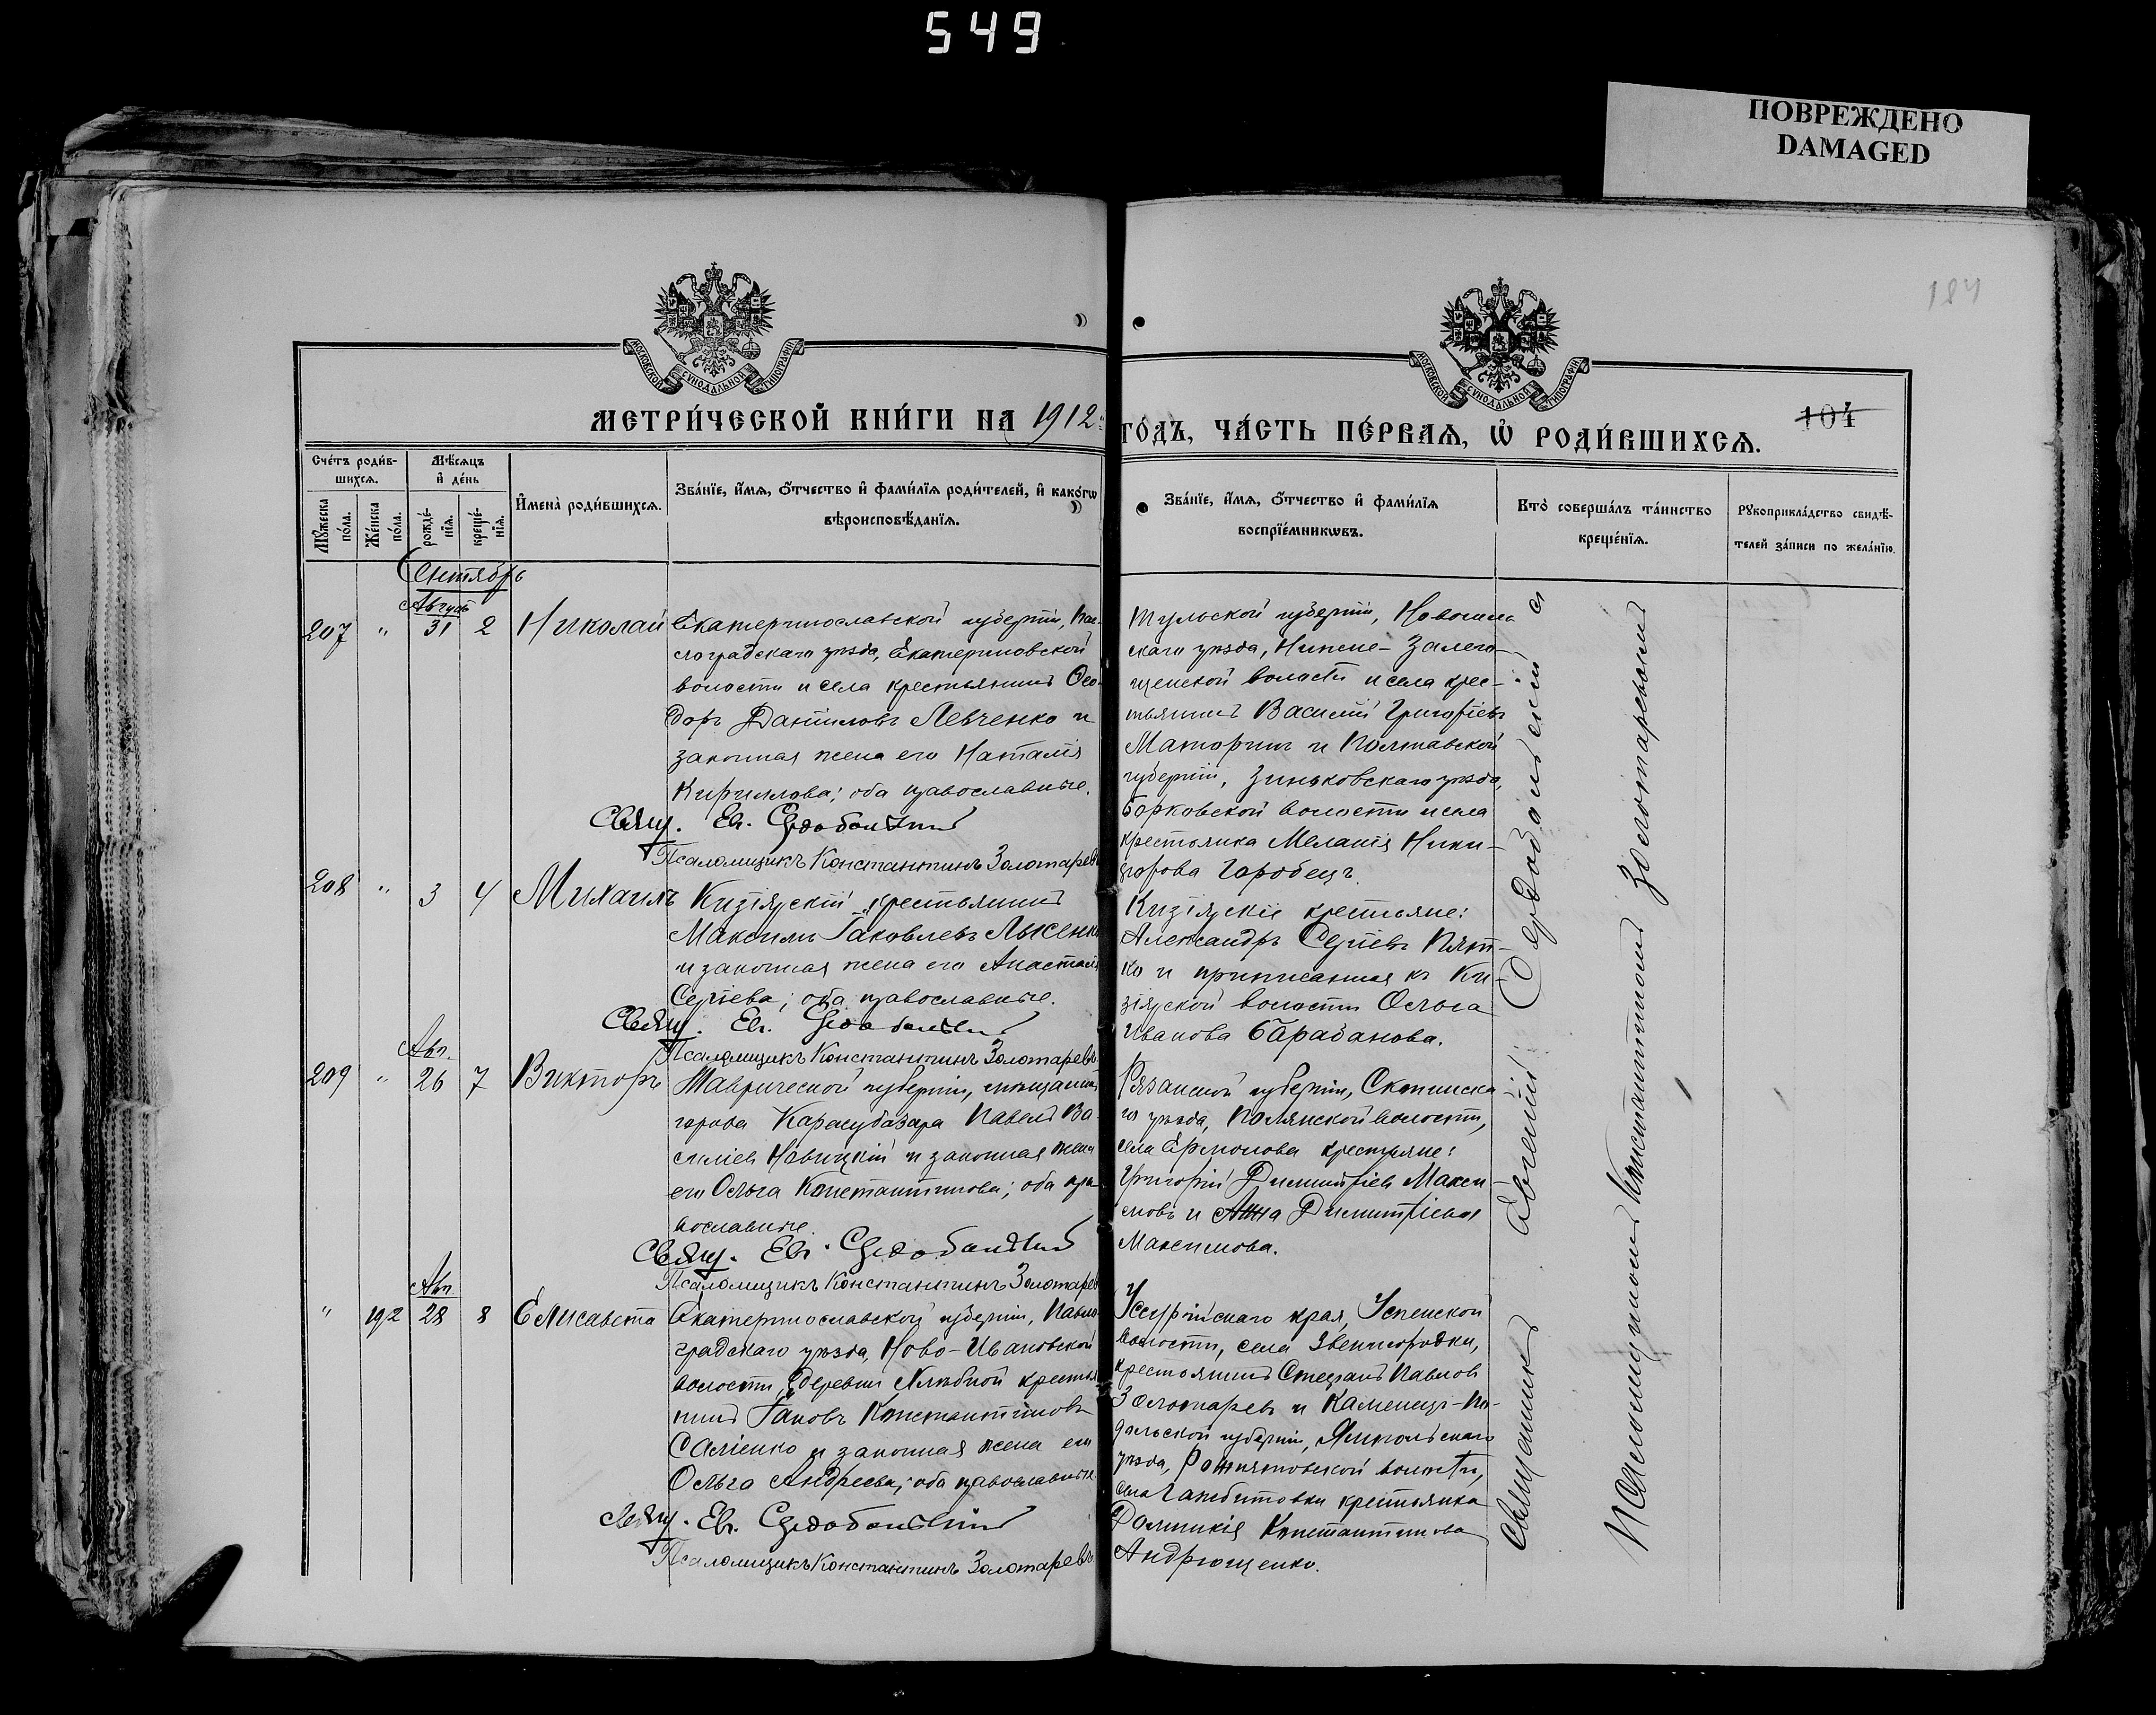 549
ПОВРЕЖДЕНО
DAMAGED
184
МОСКОВСКОЙ СѴНОДАЛЬНОЙ ТИПОГРАФІИ
МОСКОВСКОЙ СѴНОДАЛЬНОЙ ТИПОГРАФІИ
МЕТРИ́ЧЕСКОЙ КНИ́ГИ НА 1912
ГО́ДЪ, ЧА́СТЬ ПЕ́РВАЯ, Ѡ҆ РОДИ́ВШИХСЯ.
104
Сче́тъ роди́в-
шихся.
Мѣ́сяцъ
и҆ де́нь
Мꙋ́жеска
по́ла.
Же́нска
по́ла.
рожде́-
нїя.
креще́-
нїя.
И҆мена̀ роди́вшихся.
Зва́нїе, и҆́мя, ѻ҆́тчество и҆ фами́лїя роди́телей, и҆ како́гѡ
вѣроисповѣ́данїя.
Зва́нїе, и҆́мя, ѻ҆́тчество и҆ фами́лїя
воспрїе́мникѡвъ.
Кто̀ соверша́лъ та́инство
креще́нїя.
Рꙋкоприкла́дство свидѣ́-
телей за́писи по жела́нїю.
Сентябрь
Августъ
207 " 31 2 Николай Екатеринославской губерніи, Пав-
лоградскаго уѣзда, Екатериновской
волости и села крестьянинъ Ѳео-
доръ Даниловъ Левченко и
законная жена его Наталія
Кириллова; оба православные.
Свящ. Ев. Сердобольскій
Псаломщикъ Константинъ Золотаревъ
Тульской губерніи, Новосиль-
скаго уѣзда, Нижне-Залего-
щенской волости и села крес-
тьянинъ Василій Григорьевъ
Маторинъ и Полтавской
губерніи, Зиньковскаго уѣзда,
Борковской волости и села
крестьянка Меланія Ники-
форова Горобецъ.
208 " 3 4 Михаилъ Кизіярскій крестьянинъ
Максимъ Іаковлевъ Лысенко
и законная жена его Анастасія
Сергіева; оба православные.
Свящ. Ев. Сердобольскій
Псаломщикъ Константинъ Золотаревъ
Кизіярскіе крестьяне:
Александръ Сергіевъ Пят-
ко и приписанная къ Ки-
зіярской волости Ольга
Иванова Барабанова.
Авг.
209 " 26 7 Викторъ Таврической губерніи, мѣщанинъ
города Карасубазара Павелъ Ва-
силіев Навицкій и законная жена
его Ольга Константинова; оба пра-
вославные.
Свящ. Ев. Сердобольскій
Псаломщикъ Константинъ Золотарев
Рязанской губерніи, Скопинска-
го уѣзда, Полянской волости,
села Ермолова крестьяне:
Григорій Димитріев Макси-
мовъ и Анна Димитріева
Максимова.
Авг.
" 192 28 8 Елисавета Екатеринославской губерніи, Павло-
градскаго уѣзда, Ново-Ивановской
волости, деревни Хлѣбной крестья-
нинъ Іаковъ Константиновъ
Саліенко и законная жена его
Ольга Андреева; оба православные.
Свящ. Ев. Сердобольскій
Псаломщикъ Константинъ Золотаревъ
Уссурійскаго края, Успенской
волости, села Звенигородки,
крестьянинъ Стефанъ Павлов
Золотаревъ и Каменецъ-По-
дольской губерніи, Ямпольскаго
уѣзда, волости,
села крестьянка
Домникія Константинова
Андрющенко.
Священникъ Евгеній Сердобольскій
Псаломщикомъ Константиномъ Золотаревымъ